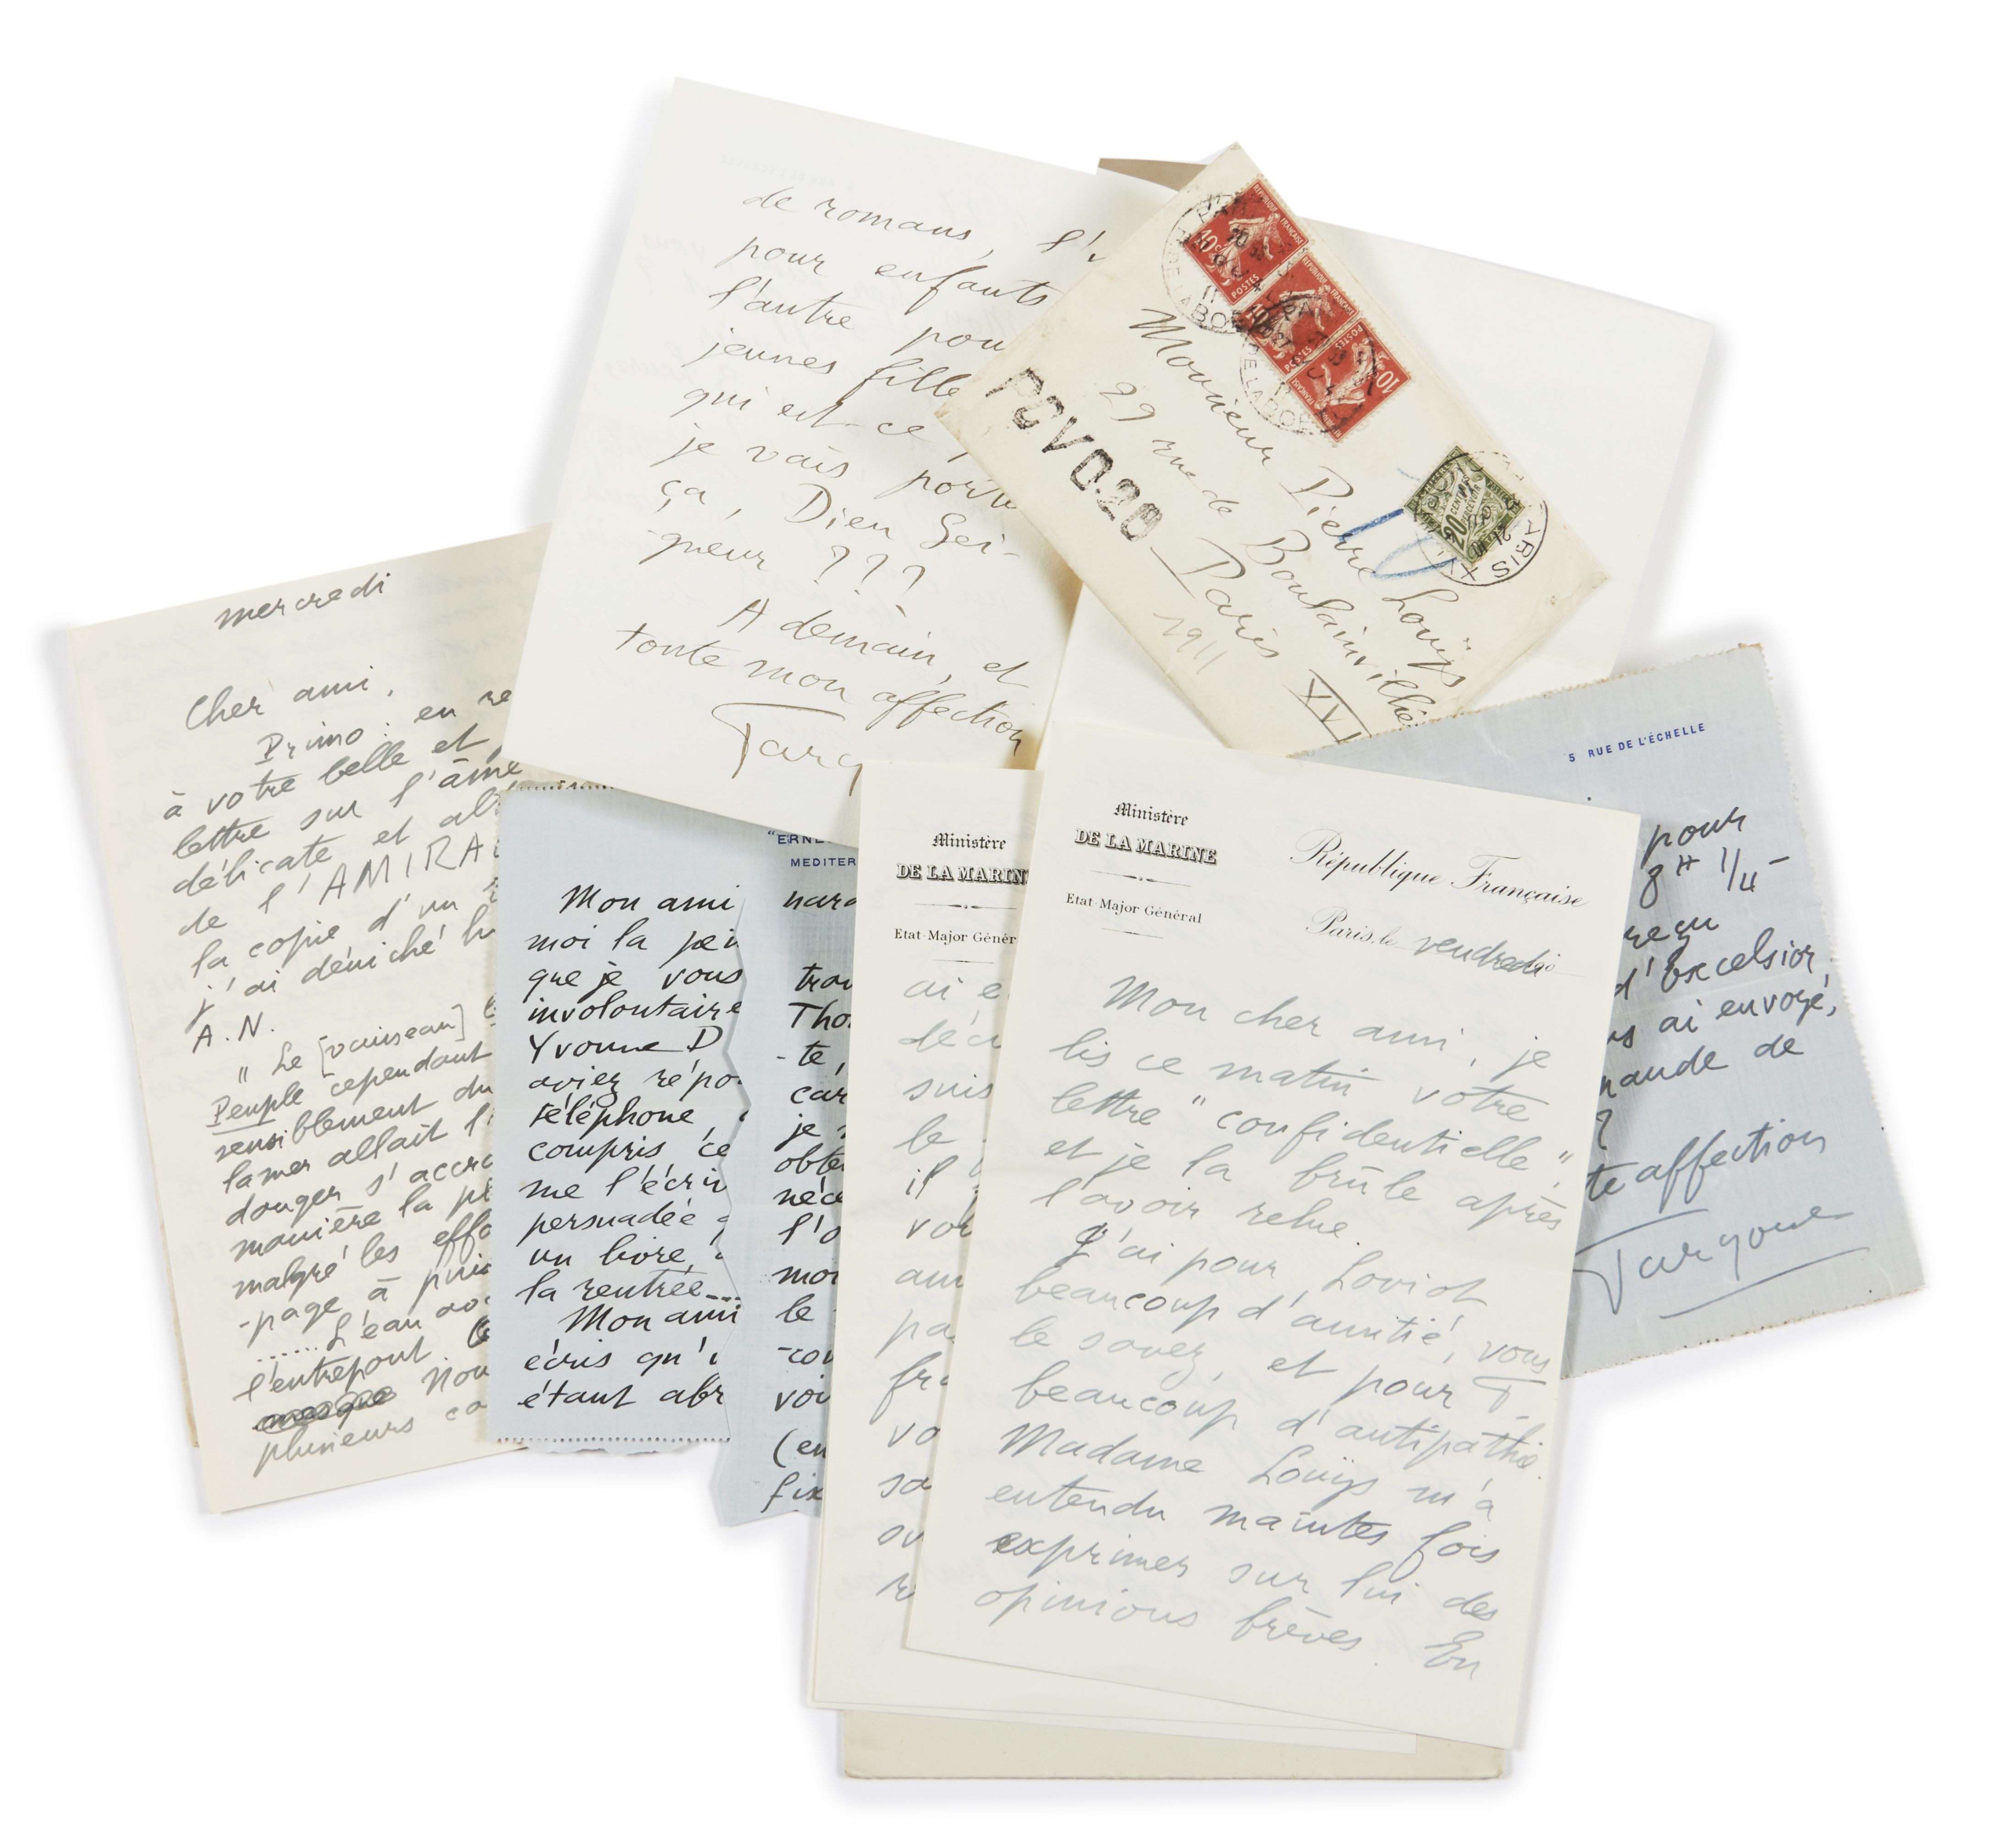 de romans, l'
pour enfants
l'autre pou
jeunes fille
qui est-ce
je vais
ça, Dieu Sei-
gneur ???
A demain, et
toute mon affection
Targ
REPUBLIQUE FRANÇAISE
10c
POSTES
PCV 0.20
Monsieur Pierre Louÿs
29 rue de Boulainvilliers
Paris
XVI
1911
10
PARIS XVI
mercredi
Cher ami,
Primo : en re
à votre belle et
lettre sur l'âme
délicate et
de l'AMIRA
la copie d'un
j'ai déniché
A.N.
" Le [vaisseau] l
Peuple cependant
sensiblement du
la mer allait
danger s'accro
manière la
malgré les effo
-page à puis
...... L'eau av
l'entrepont.
Nou
plusieurs co
"ERNE
MEDITER
Mon ami
moi la pein
que je vous
involontaire
Yvonne D
aviez répo
téléphone,
compris ce
me l'écriv
persuadée
un livre,
la rentrée...
Mon ami
écris qu'i
étant abr
narq
trav
Tho
-te,
car
je
obte
néce
l'o
moi
le
-cou
voi
(en
fix
Ministère
DE LA MARIN
Etat-Major Génér
ai e
déci
suis
le
il
voi
am
pa
fra
vo
sa
Ministère
DE LA MARINE
Etat-Major Général
République Française
Paris, le vendredi
Mon cher ami, je
lis ce matin votre
lettre "confidentielle",
et je la brûle après
l'avoir relue.
J'ai pour Loviot
beaucoup d'amitié, vous
le savez, et pour T.
beaucoup d'antipathie.
Madame Louÿs m'a
entendu maintes fois
exprimer sur lui des
opinions brèves. En
5 RUE DE L'ÉCHELLE
pour
8H 1/4 -
reçu
d'Excelsior,
us ai envoyé,
mande de
?
te affection
Targone